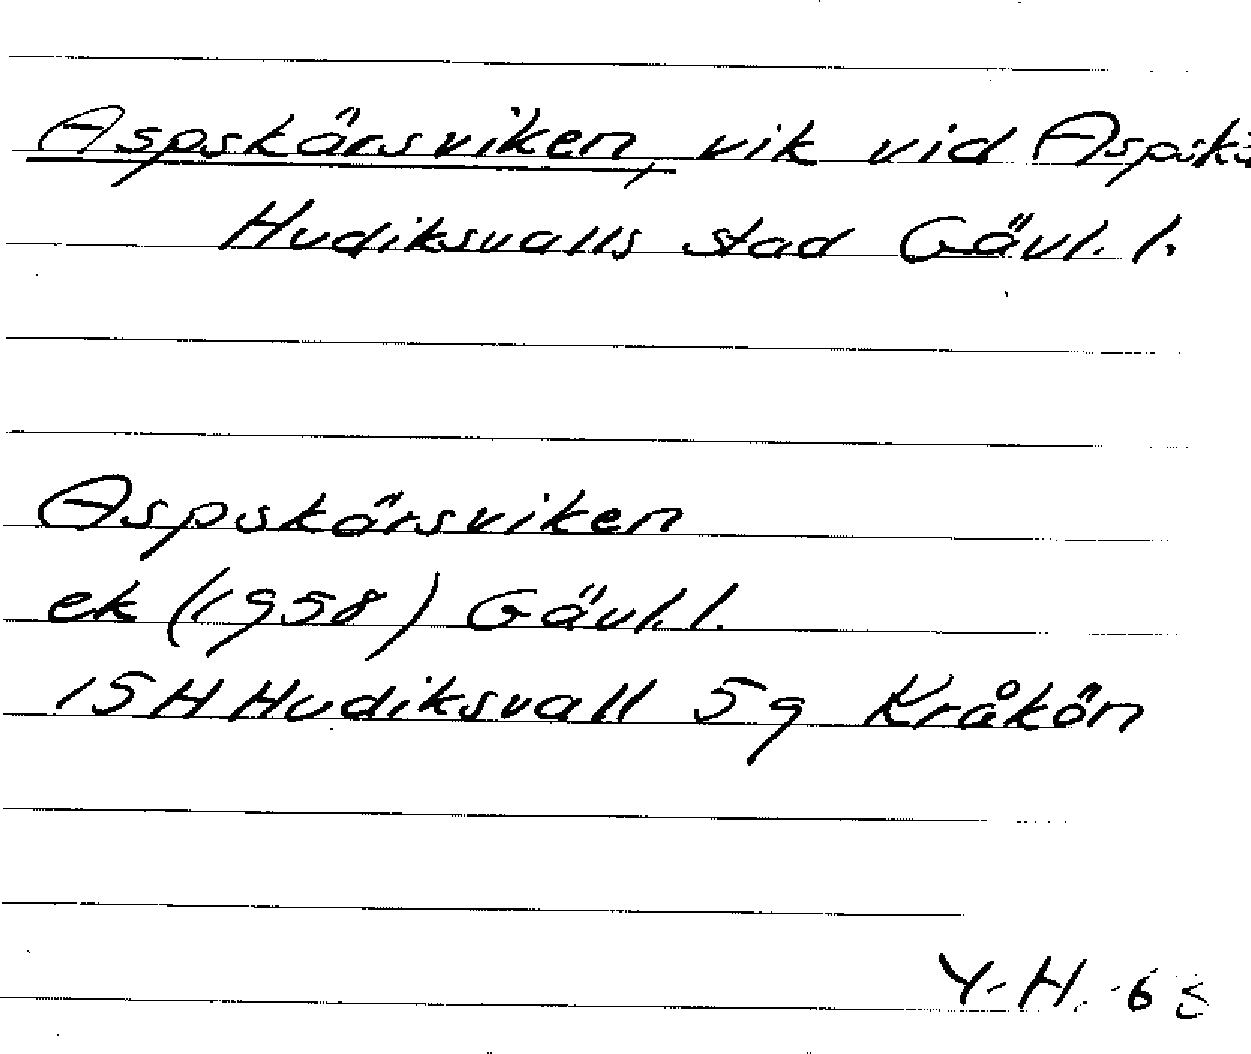 Aspskärsviken, vik vid
Hudiksvalls stad Gävl. l.
Aspskärsviken
ek (1958) Gävl. l.
15H Hudiksvall 5g Kråkön
Y. H. -65